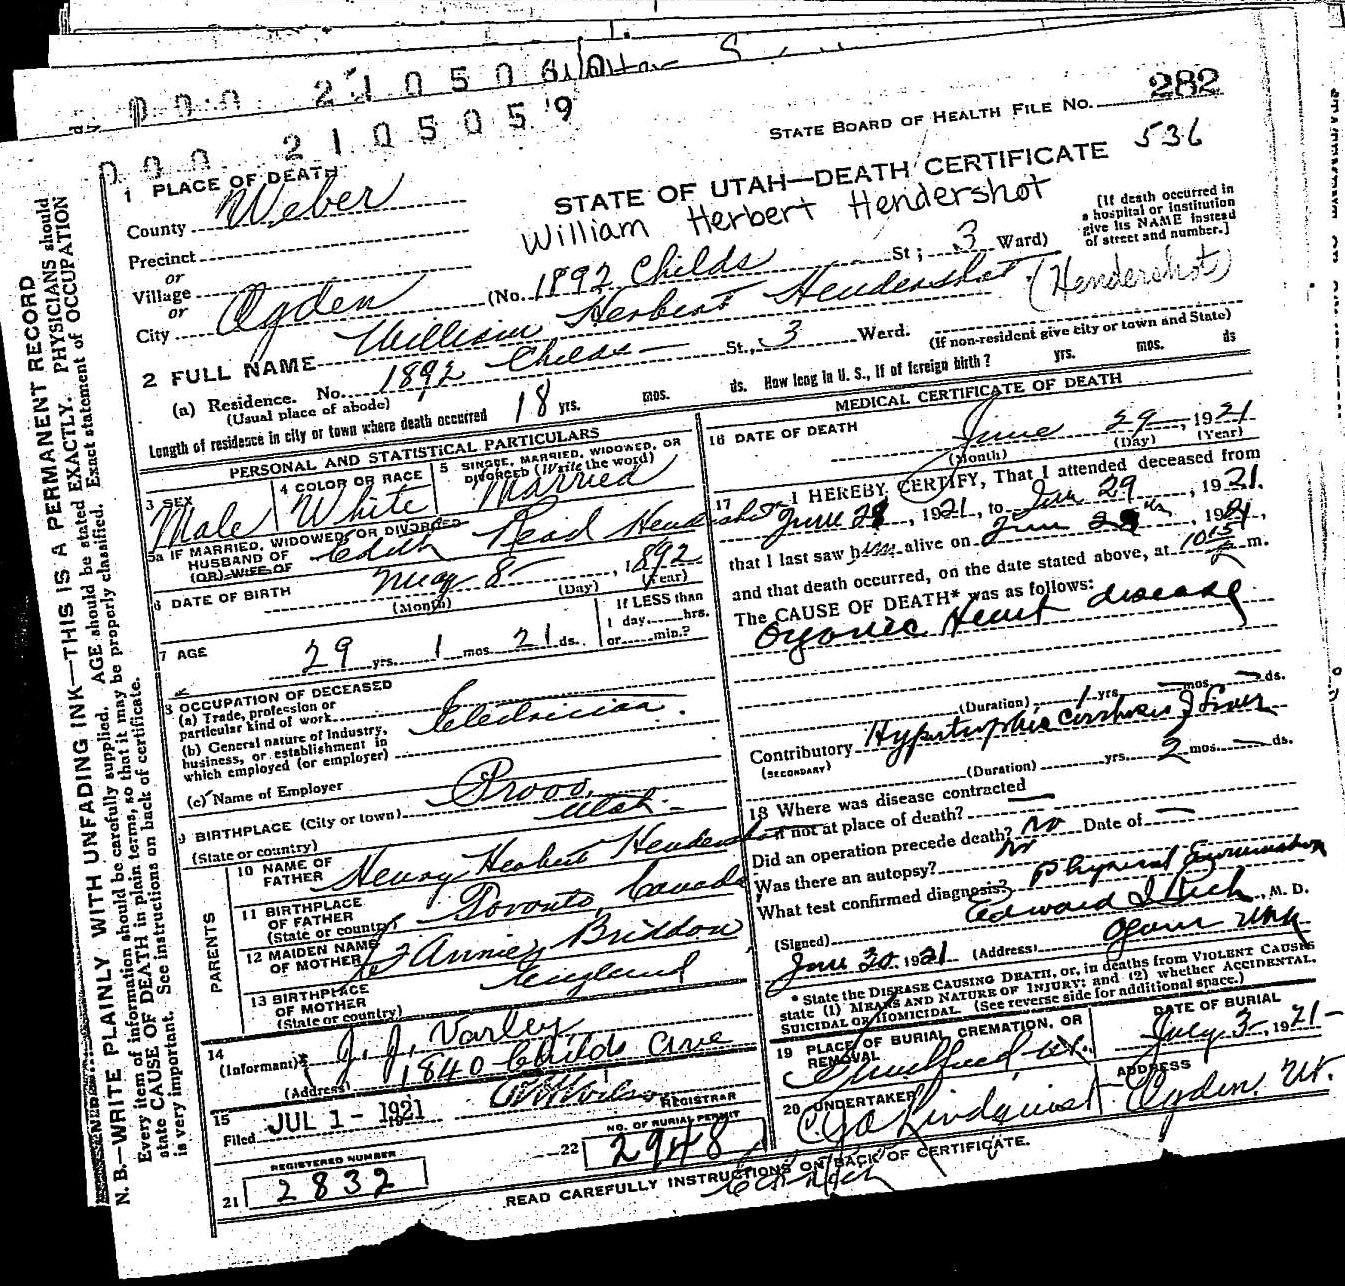 000 210506
000 2105059
STATE BOARD OF HEALTH FILE NO. 282
536
STATE OF UTAH—DEATH CERTIFICATE
William Herbert Hendershot
1 PLACE OF DEATH
County Weber
Precinct
or
Village
or
City Ogden (No. 1892 Childs St; 3 Ward)
[If death occurred in
a hospital or institution
give its NAME instead
of street and number.]
2 FULL NAME William Herbert Hendershot (Hendershot)
(a) Residence. No. 1892 Childs St., 3 Ward. (If non-resident give city or town and State)
(Usual place of abode)
Length of residence in city or town where death occurred 18 yrs. mos. ds. How long in U. S., if of foreign birth? yrs. mos. ds
PERSONAL AND STATISTICAL PARTICULARS
3 SEX Male
4 COLOR OR RACE White
5 SINGLE, MARRIED, WIDOWED, OR
DIVORCED (Write the word) Married
5a IF MARRIED, WIDOWED OR DIVORCED
HUSBAND OF Edith Read Hendershot
(OR) WIFE OF
6 DATE OF BIRTH May 8 , 1892
(Month) (Day) (Year)
7 AGE 29 yrs. 1 mos. 21 ds.
If LESS than
1 day......hrs.
or......min.?
8 OCCUPATION OF DECEASED
(a) Trade, profession or
particular kind of work Electrician.
(b) General nature of Industry,
business, or establishment in
which employed (or employer)
(c) Name of Employer
9 BIRTHPLACE (City or town) Provo,
(State or country) Utah.
PARENTS
10 NAME OF
FATHER Henry Herbert Hendershot
11 BIRTHPLACE
OF FATHER
(State or country) Toronto, Canada
12 MAIDEN NAME
OF MOTHER Fannie Briddon
13 BIRTHPLACE
OF MOTHER
(State or country) England
14
(Informant) J. J. Varley
(Address) 1840 Childs Ave
15
Filed JUL 1 - 1921 Wilson
REGISTRAR
REGISTERED NUMBER
21 2832
NO. OF BURIAL PERMIT
22 2948
MEDICAL CERTIFICATE OF DEATH
16 DATE OF DEATH June 29, 1921
(Month) (Day) (Year)
17 I HEREBY CERTIFY, That I attended deceased from
June 28, 1921, to Jun 29, 1921.
that I last saw him alive on June 29th, 1921,
and that death occurred, on the date stated above, at 10 15 m.
The CAUSE OF DEATH* was as follows:
Organic Heart disease
(Duration) 1 yrs. — mos. — ds.
Contributory Hypertrophic cirrhosis of Liver
(SECONDARY)
(Duration) yrs. 2 mos. — ds.
18 Where was disease contracted
if not at place of death? —
Did an operation precede death? No Date of —
Was there an autopsy? No
What test confirmed diagnosis? Physical Examination
(Signed) Edward I Rich, M. D.
June 30, 1921 (Address) Ogden Utah
* State the DISEASE CAUSING DEATH, or, in deaths from VIOLENT CAUSES
state (1) MEANS AND NATURE OF INJURY; and (2) whether ACCIDENTAL,
SUICIDAL OR HOMICIDAL. (See reverse side for additional space.)
19 PLACE OF BURIAL, CREMATION, OR
REMOVAL Ut.
DATE OF BURIAL
July 3, 1921
20 UNDERTAKER Lindquist
ADDRESS
Ogden. Ut.
READ CAREFULLY INSTRUCTIONS ON BACK OF CERTIFICATE.
N. B.—WRITE PLAINLY WITH UNFADING INK—THIS IS A PERMANENT RECORD
Every item of information should be carefully supplied. AGE should be stated EXACTLY. PHYSICIANS should
state CAUSE OF DEATH in plain terms, so that it may be properly classified. Exact statement of OCCUPATION
is very important. See instructions on back of certificate.